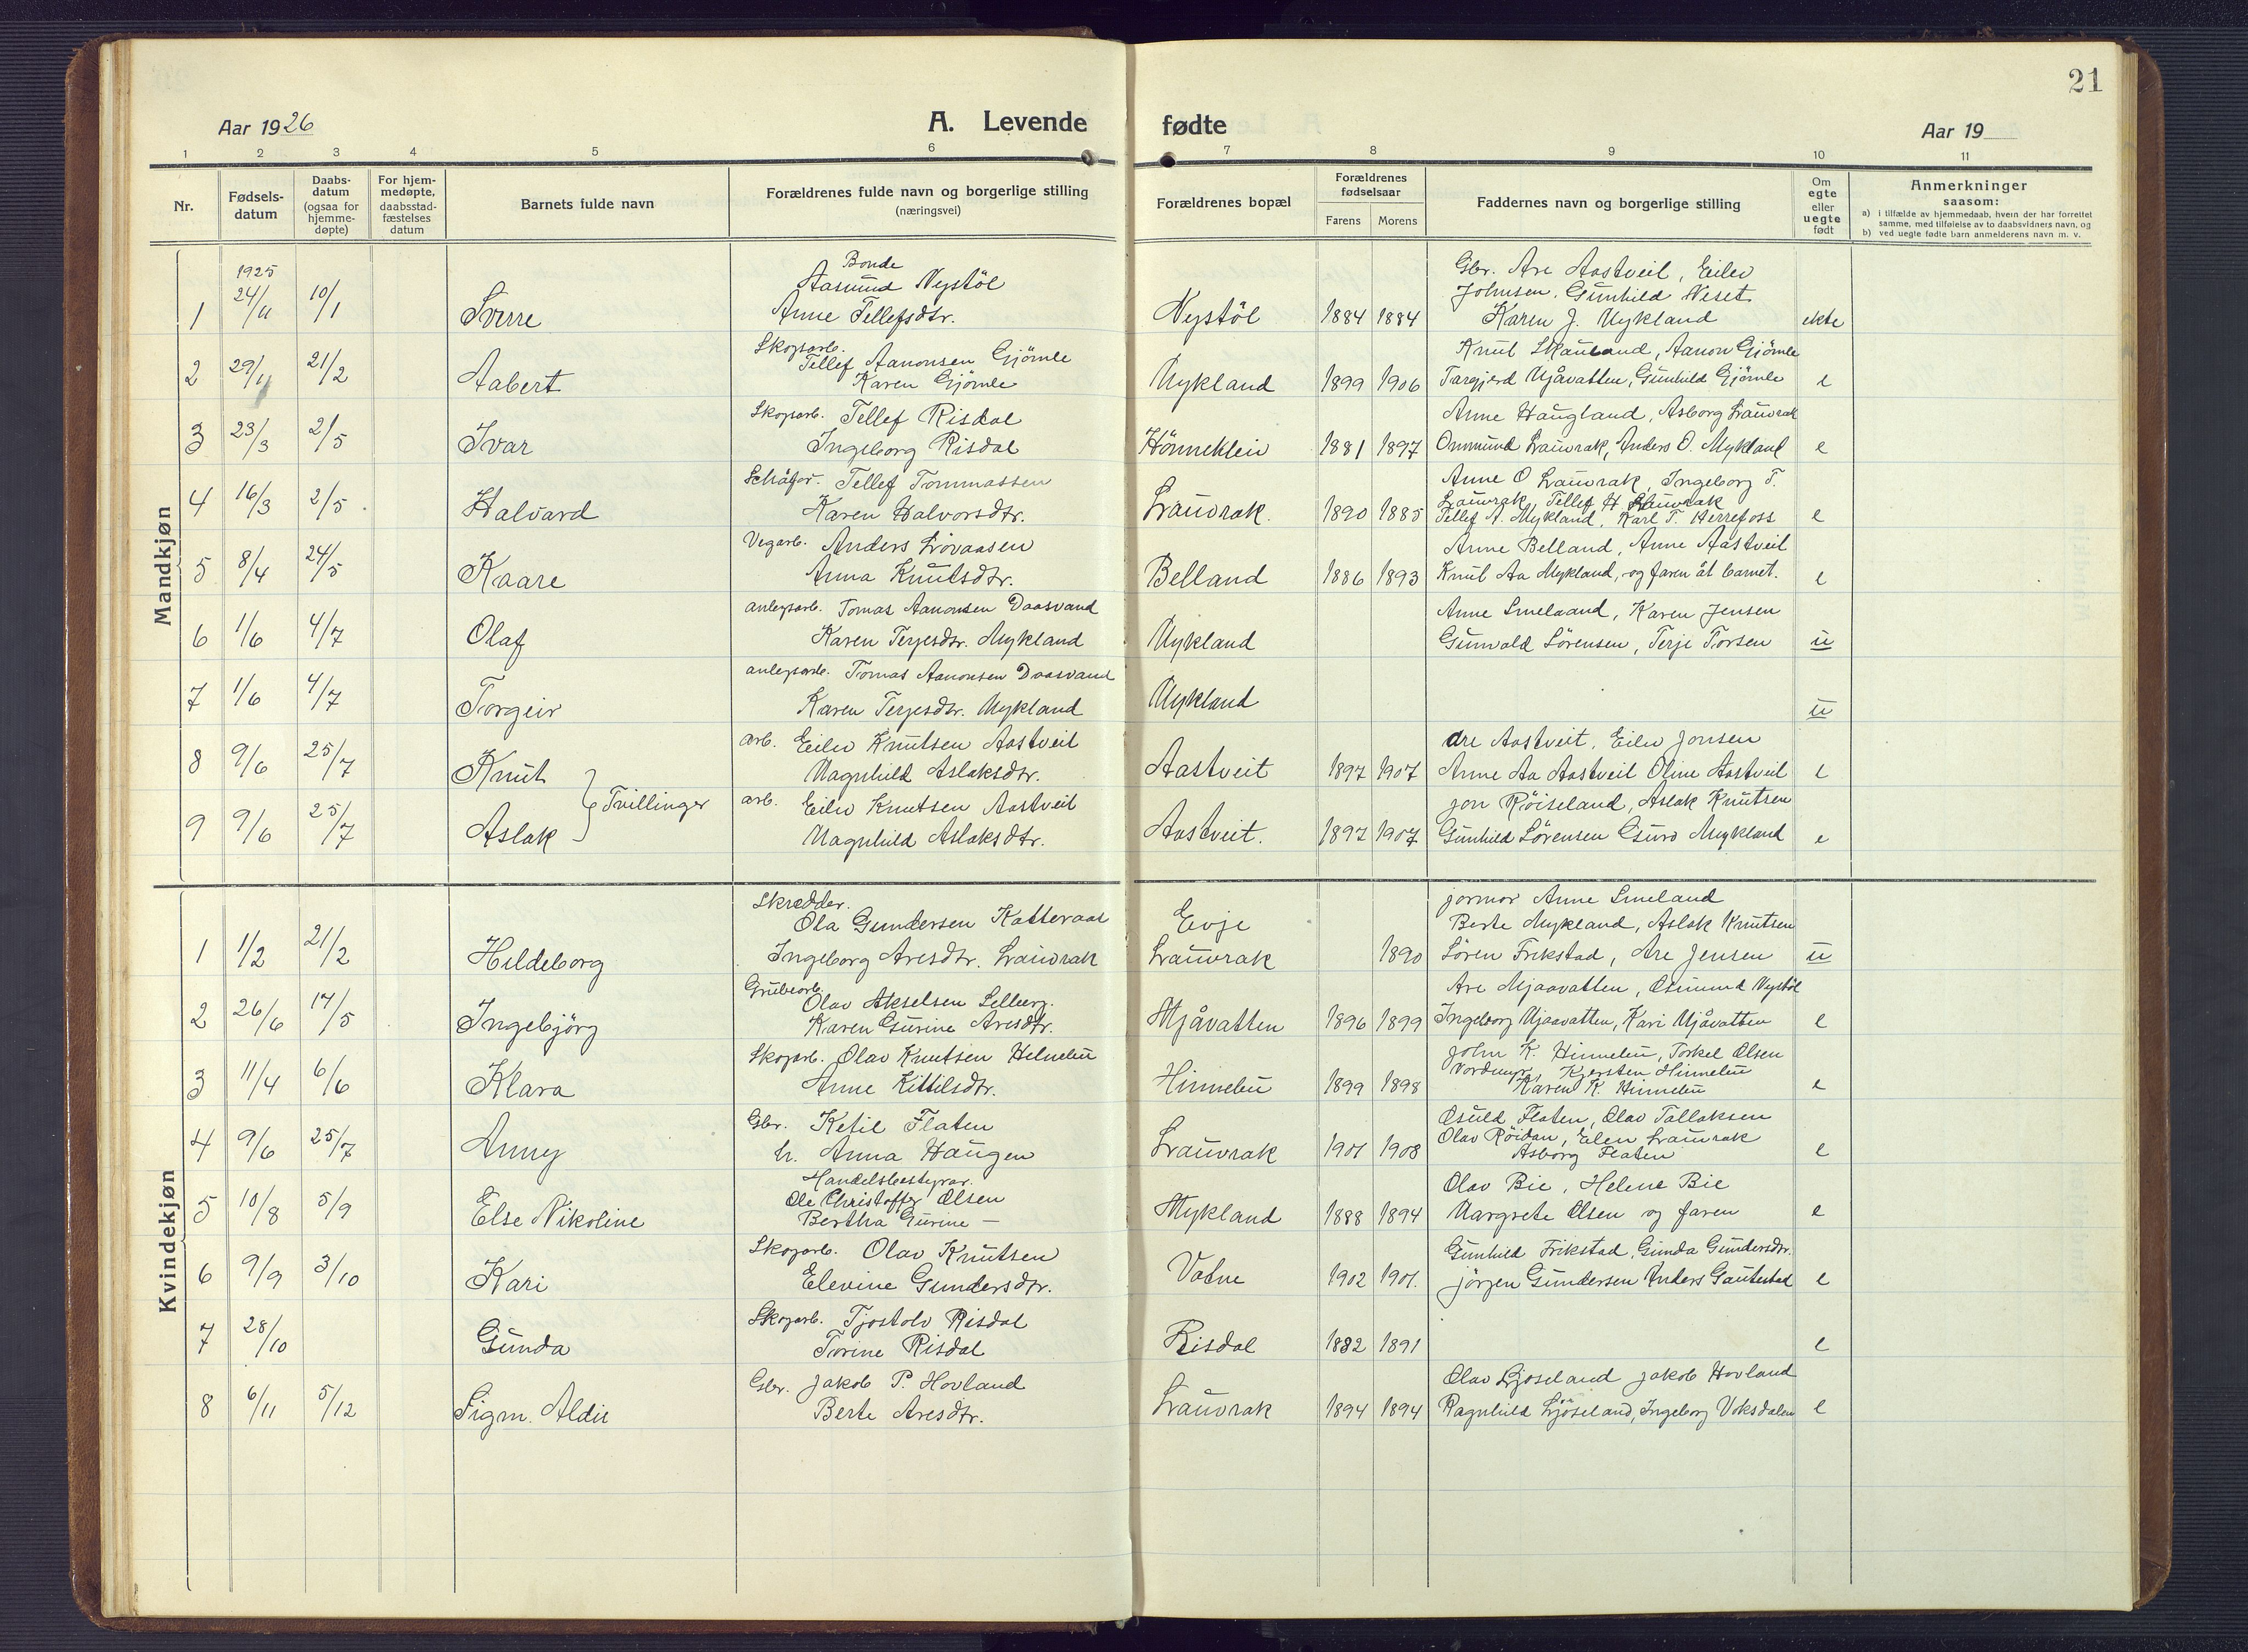 21
Aar 1926
A. Levende fødte
Aar 19
1 2 3 4 5 6 7 8 9 10 11
Nr.
Fødsels-
datum
Daabs-
datum
(ogsaa for
hjemme-
døpte)
For hjem-
medøpte,
daabsstad-
fæstelses
datum
Barnets fulde navn
Forældrenes fulde navn og borgerlige stilling
(næringsvei)
Forældrenes bopæl
Forældrenes
fødselsaar
Farens Morens
Faddernes navn og borgerlige stilling
Om
egte
eller
uegte
født
Anmerkninger
saasom:
a) i tilfælde av hjemmedaab, hvem der har forrettet
samme, med tilføielse av to daabsvidners navn, og
b) ved uegte fødte barn anmelderens navn m. v.
Mandkjøn
1925
Bonde
Gbr. Are Aastveit, Eiliv
Aasmund Nystöl
Johnsen, Gunhild Neset
1 24/11 10/1 Sverre Anne Tellefsdtr. Nystöl 1884 1884 Karen J. Mykland ekte
Skogsarb. Tellef Aanonsen Gjömle
Knut Skauland, Aanon Gjömle
2 29/11 21/2 Aabert Karen Gjömle Mykland 1899 1906 Targjerd Mjåvatten, Gunhild Gjömle e
Skogsarb. Tellef Risdal
Anne Haugland, Asborg Lauvrak
3 23/3 2/5 Ivar Ingeborg Risdal Hönnekleiv 1881 1897 Ommund Lauvrak, Anders O. Mykland e
Tellef Tommassen
Anne O Lauvrak, Ingeborg T.
Lauvrak, Tellef H Lauvrak
4 16/3 2/5 Halvard Karen Halvorsdtr. Lauvrak 1890 1885 Tellef A. Mykland, Karl T. Herrefoss e
Vegarb. Anders Lövaasen
Anne Belland, Anne Aastveit
5 8/4 24/5 Kaare Anna Knutsdtr. Belland 1886 1893 Knut Aa Mykland, og faren åt barnet. e
anlegsarb. Tomas Aanonsen Daasvand
Anne Smelaand, Karen Jensen
6 1/6 4/7 Olaf Karen Terjesdtr. Mykland Mykland Gunvald Sörensen, Terje Torsen u
anlegsarb. Tomas Aanonsen Daasvand
7 1/6 4/7 Torgeir Karen Terjesdtr. Mykland Mykland u
arb. Eiliv Knutsen Aastveit
Are Aastveit, Eiliv Jonsen
8 9/6 25/7 Knut Magnhild Aslaksdtr. Aastveit 1897 1907 Anne Aa Aastveit Oline Aastveit e
Tvillinger
arb. Eiliv Knutsen Aastveit
Jon Röiseland, Aslak Knutsen
9 9/6 25/7 Aslak Magnhild Aslaksdtr. Aastveit. 1897 1907 Gunhild Sörensen Guro Mykland e
Kvindekjøn
Skredder.
jormor Anne Smeland
Ola Gundersen Katteraas Evje
Berte Mykland, Aslak Knutsen
1 1/2 21/2 Hildeborg Ingeborg Aresdtr. Lauvrak Lauvrak 1890 Sören Frikstad, Are Jensen u
Grubearb.
Olav Akselsen Selberg.
Are Mjaavatten, Osmund Nystöl
2 26/6 17/5 Ingebjörg Karen Gurine Aresdtr. Mjåvatten 1896 1899 Ingeborg Mjaavatten, Kari Mjåvatten e
Skogarb. Olav Knutsen
John K. Hinnebu, Torkel Olsen
Kjersten Hinnebu
3 11/4 6/6 Klara Anne Kittilsdtr. Hinnebu 1899 1898 Karen K. Hinnebu e
Gbr. Ketil Flaten
Osuld Flaten, Olav Tallaksen
Olav Röidan, Elen Lauvrak
4 9/6 25/7 Anny h. Anna Haugen Lauvrak 1901 1908 Asborg Flaten e
Handelsbestyrar.
Ole Christoffer Olsen
Olav Bie, Helene Bie
5 10/8 5/9 Else Nikoline Bertha Gurine — Mykland 1888 1894 Margrete Olsen og faren e
Skogarb. Olav Knutsen
Gunhild Frikstad, Gunda Gundersdtr.
6 9/9 3/10 Kari Elevine Gundersdtr. Vatne 1902 1901. Jörgen Gundersen Anders Gautestad e
Skogarb. Tjostolv Risdal
7 28/10 Gunda Torine Risdal Risdal 1882 1891 e
Gbr. Jakob P. Hovland
Olav Ljoseland Jakob Hovland
8 6/11 5/12 Sigm. Aldie Berte Aresdtr. Lauvrak 1894 1894 Ragnhild Ljöseland, Ingeborg Voksdalen e